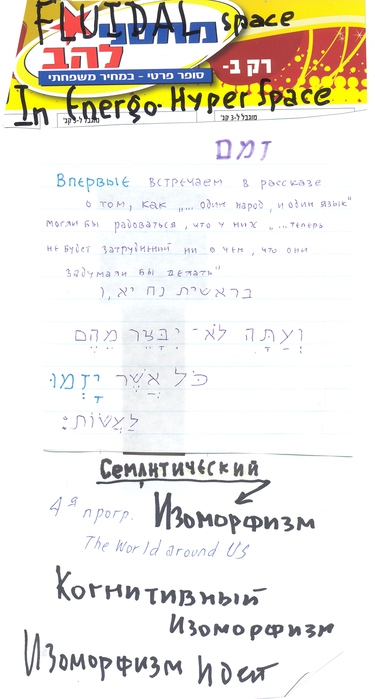 FLUIDAL space
להב
סופר פרטי - במחיר משפחתי
רק ב-
In Energo-HyperSpace
מוגבל ל-3 קג'
זמם
Впервые встречаем в рассказе
о том, как „... один народ, и один язык"
могли бы радоваться, что у них „...теперь
не будет затруднений ни в чем, что они
задумали бы делать"
בראשית נח יא,ו
וְעַתָּה לֹא־ יִבָּצֵר מֵהֶם
כֹּל אֲשֶׁר יָזְמוּ
לַעֲשׂוֹת:
Семантический
4я прогр. Изоморфизм
The World around US
Когнитивный
Изоморфизм
Изоморфизм идей